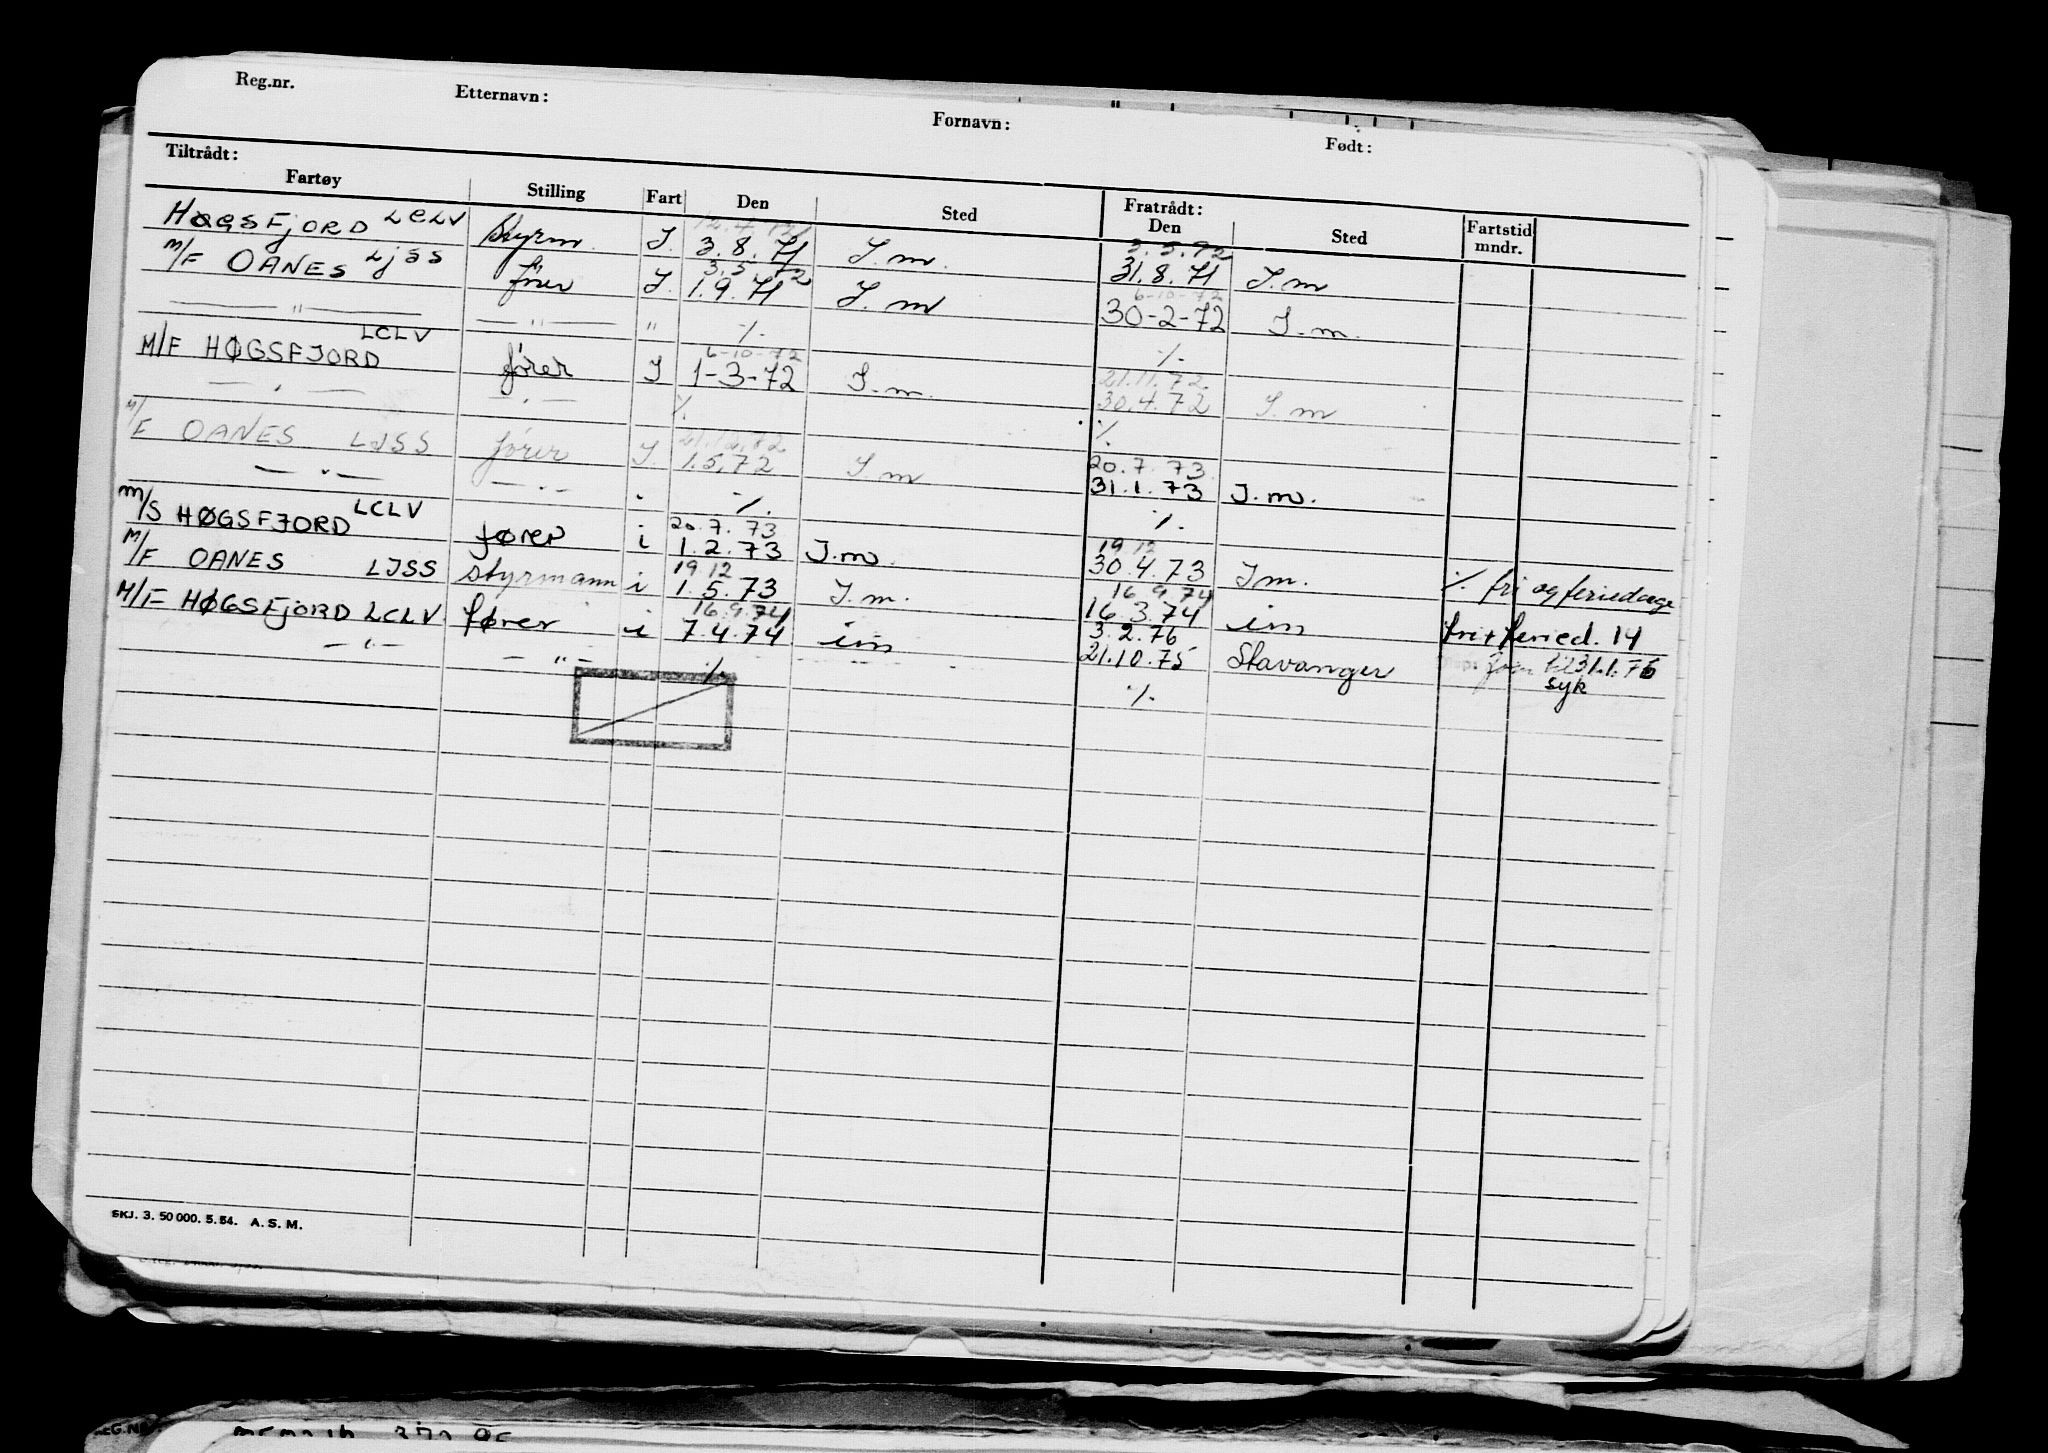 Reg.nr. Etternavn: Fornavn: Født:
Tiltrådt: Fratrådt:
Fartøy Stilling Fart Den Sted Den Sted Fartstid mndr.
3.5.72
HØGSFJORD LCLV Styrm. I. 3.8.71 I.m. 31.8.71 I.m
3.5.72 6-10-72
M/F OANES LJSS fører I. 1.9.71 I.m 30-2-72 I.m.
— " — — " — " ./. ./.
6-10-72 21.11.72
M/F HØGSFJORD LCLV fører I 1-3-72 I.m. 30.4.72 I.m
— " — — " — ./. ./.
20.7.73
M/F OANES LJSS fører I. 1.5.72 I.m 31.1.73 I.m.
— " — — " — " ./. ./.
20.7.73 19.12
M/S HØGSFJORD LCLV fører i 1.2.73 I.m. 30.4.73 I.m. ./. fri og feriedage
19.12 16.9.74
M/F OANES LJSS styrmann i 1.5.73 I.m. 16.3.74 im fri + feried. 14
16.9.74 3.2.76
M/F HØGSFJORD LCLV fører i 7.4.74 im 21.10.75 Stavanger 31.1.76
syk
— " — — " — ./. ./.
SKJ. 3. 50 000. 5.54. A. S. M.